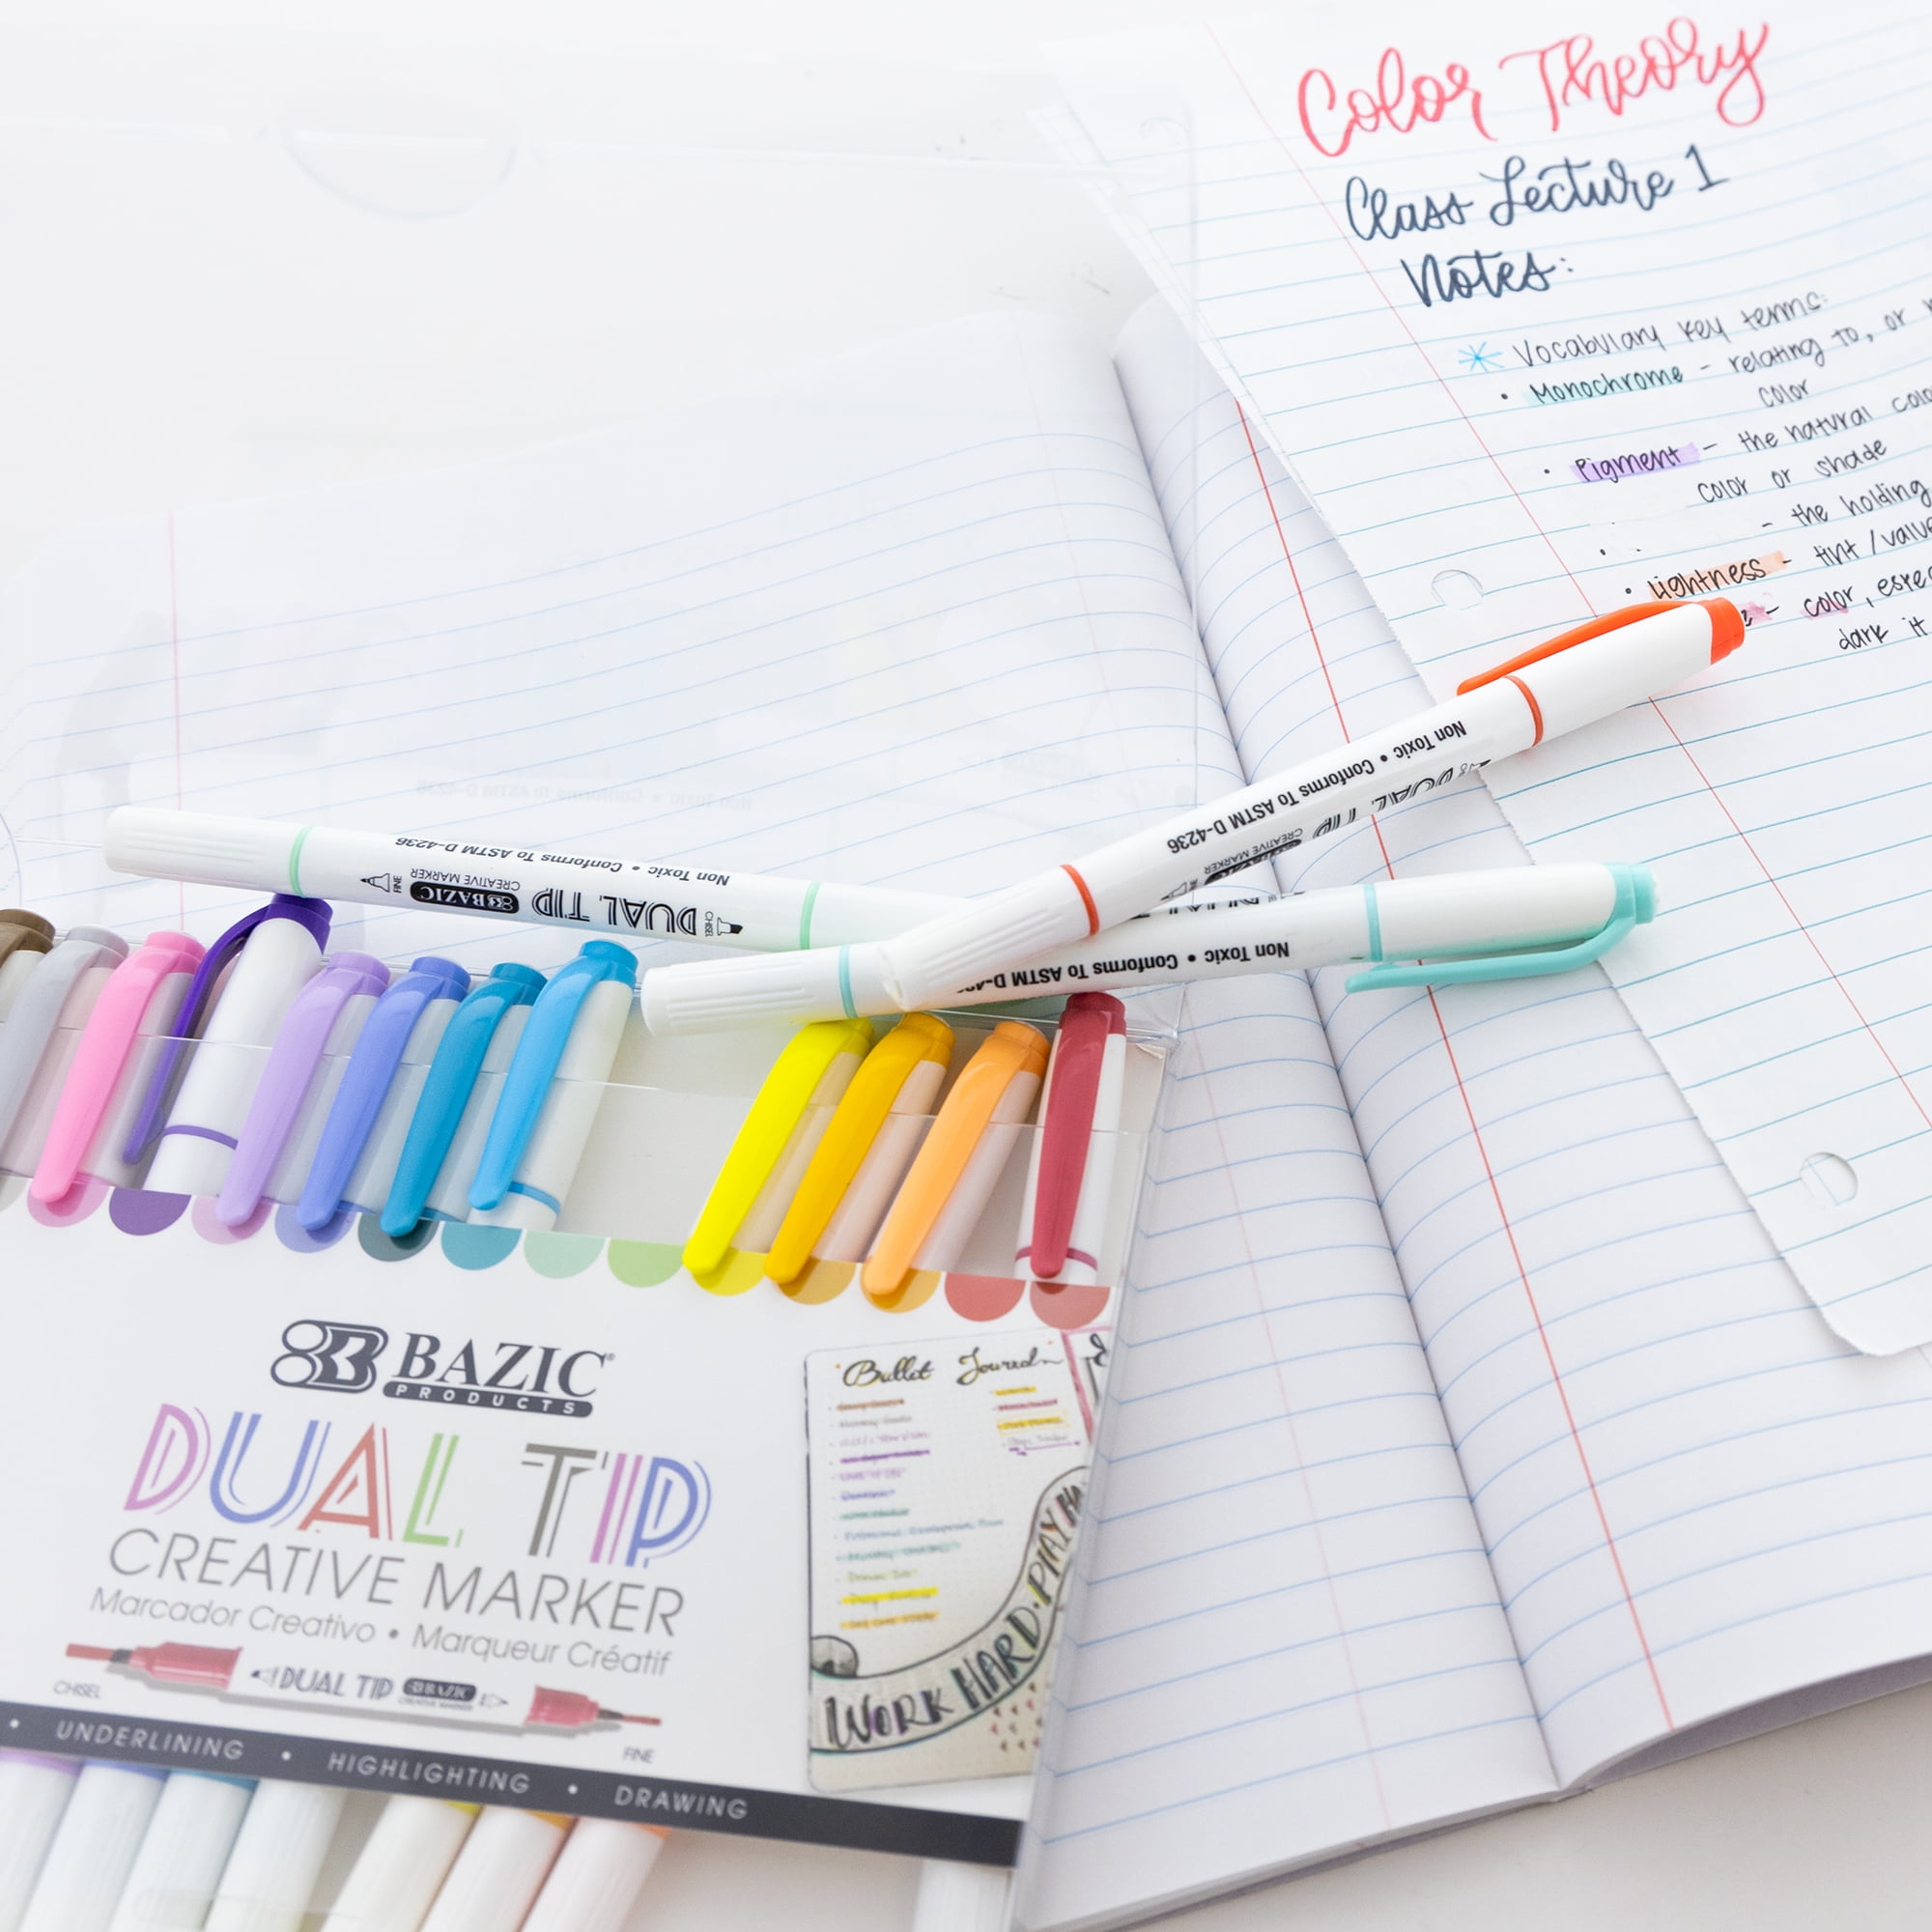 Color Theory
Class Lecture 1
Notes:
Vocabulary key terms:
• Monochrome - relating to, or
color
• Pigment - the natural
color or shade
• - the holding
• Lightness - tint / value
- color,
dark it
Non Toxic • Conforms To ASTM D-4236
DUAL TIP
CREATIVE MARKER
Non Toxic • Conforms To ASTM D-4236
CHISEL DUAL TIP BAZIC CREATIVE MARKER FINE
Non Toxic • Conforms To ASTM
BAZIC®
PRODUCTS
DUAL TIP
CREATIVE MARKER
Marcador Creativo • Marqueur Créatif
CHISEL
DUAL TIP BAZIC
CREATIVE MARKER
FINE
• UNDERLINING • HIGHLIGHTING • DRAWING
Bullet Journal
WORK HARD • PLAY